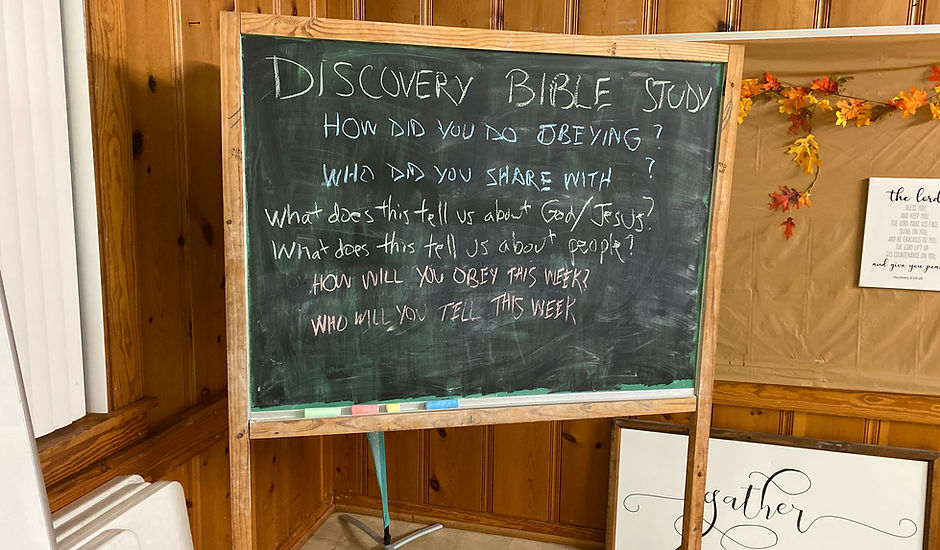 DISCOVERY BIBLE STUDY
HOW DID YOU DO OBEYING?
WHO DID YOU SHARE WITH ?
What does this tell us about God/Jesus?
What does this tell us about people?
HOW WILL YOU OBEY THIS WEEK?
WHO WILL YOU TELL THIS WEEK
the lord
BLESS YOU
AND KEEP YOU
THE LORD MAKE HIS FACE
SHINE ON YOU
AND BE GRACIOUS TO YOU
THE LORD LIFT UP
HIS COUNTENANCE ON YOU
and give you peac
Numbers 6:24-26
gather